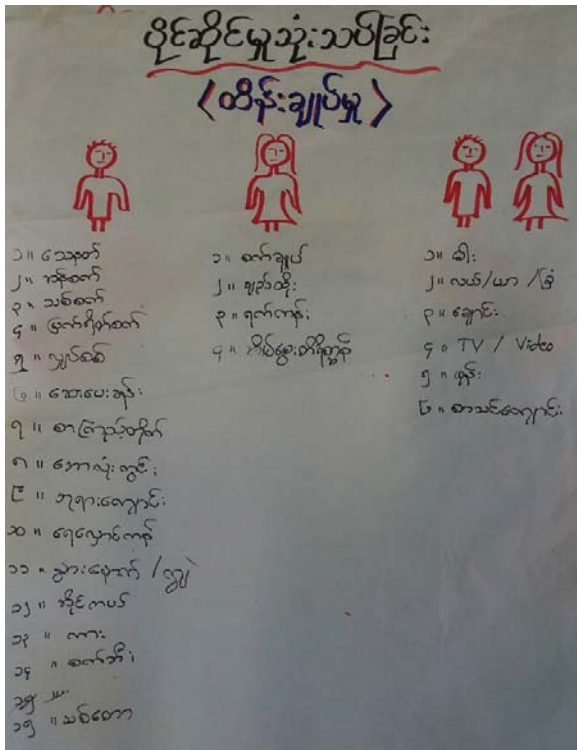 ပိုင်ဆိုင်မှုသုံးသပ်ခြင်း
〈ထိန်းချုပ်မှု〉
၁။ သေနတ်
၂။ ဘန်စက်
၃။ သစ်စက်
၄။ မြက်ရိတ်စက်
၅။ လျှပ်စစ်
၆။ ဆေးပေးခန်း
၇။ စာကြည့်တိုက်
၈။ ဘောလုံးကွင်း
၉။ ဘုရားကျောင်း
၁၀။ ရေလှောင်ကန်
၁၁။ နွားနောက် / လှည်း
၁၂။ ဆိုင်ကယ်
၁၃။ ကား
၁၄။ စက်ဘီး
၁၅။ သစ်တော
၁။ စက်ချုပ်
၂။ ချည်ထိုး
၃။ ရက်ကန်း
၄။ အိမ်မွေးတိရိစ္ဆာန်
၁။ ဓါး
၂။ လယ်/ယာ /ခြံ
၃။ ချောင်း
၄။ TV / Video
၅။ ဖုန်း
၆။ စာသင်ကျောင်း